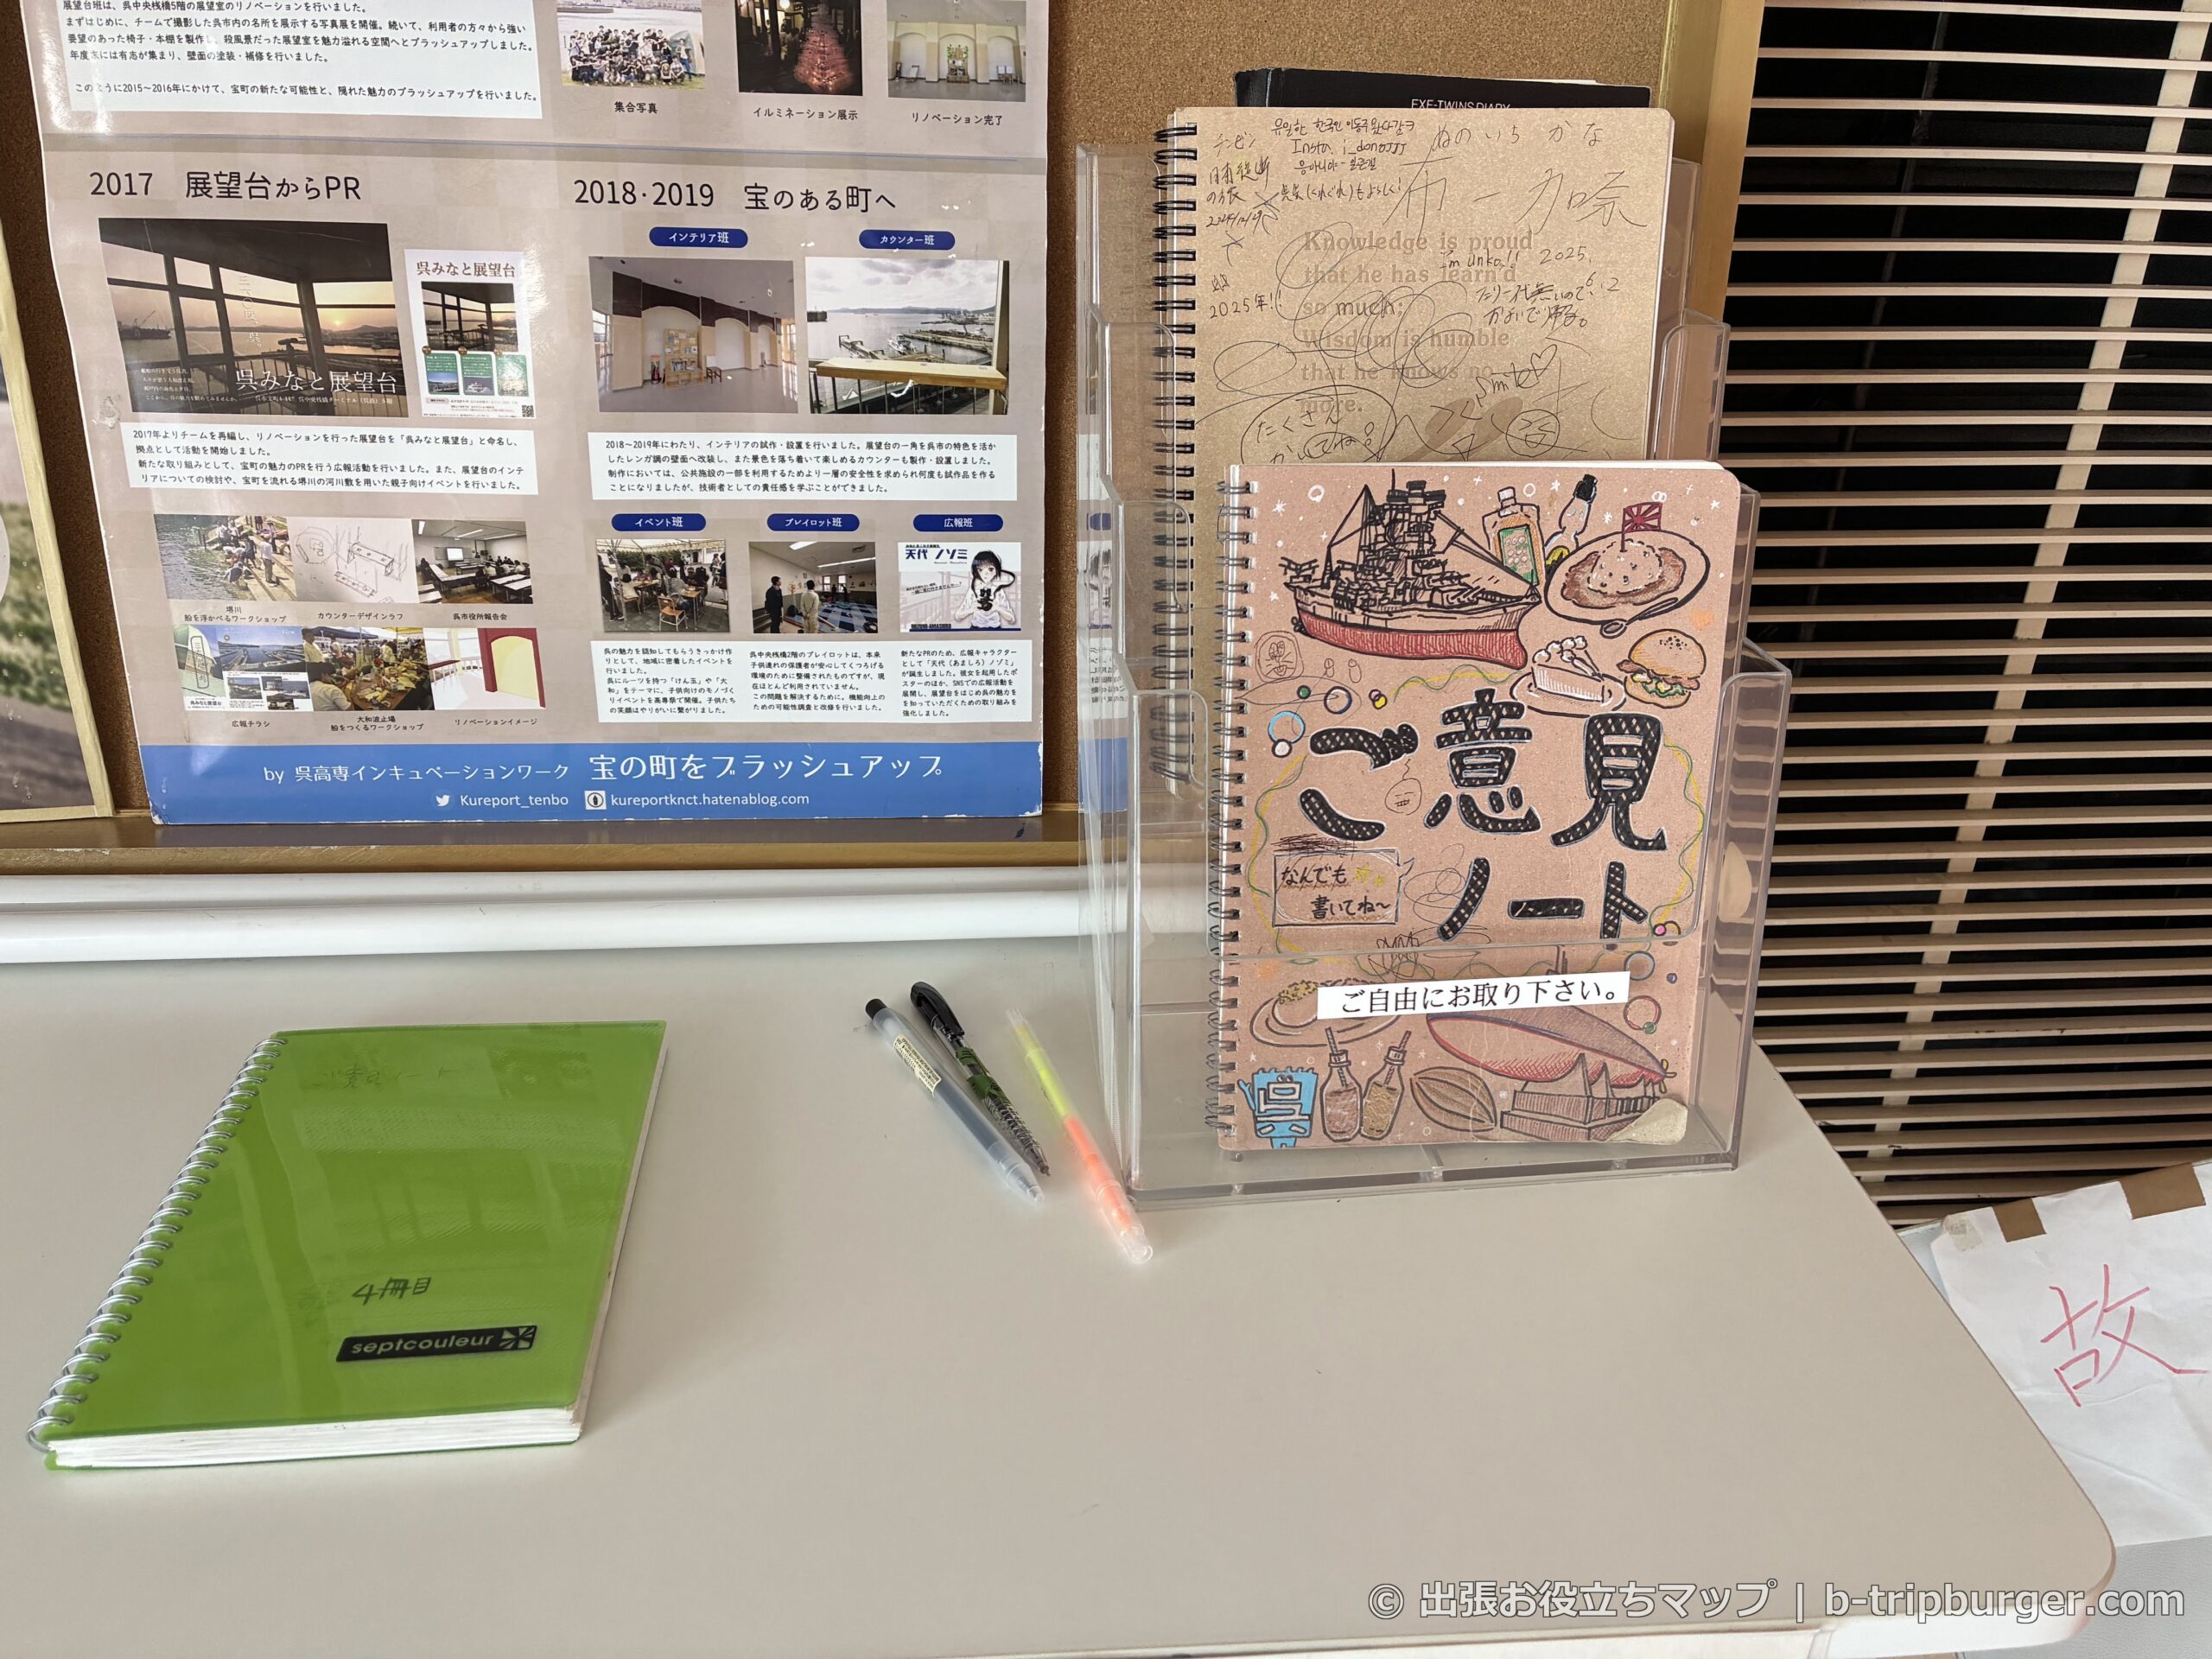 展望台班は、呉中央桟橋5階の展望室のリノベーションを行いました。
まずはじめに、チームで撮影した呉市内の名所を展示する写真展を開催。続いて、利用者の方々から強い
要望のあった椅子・本棚を製作し、殺風景だった展望室を魅力溢れる空間へとブラッシュアップしました。
年度末には有志が集まり、壁面の塗装・補修を行いました。
このように2015〜2016年にかけて、宝町の新たな可能性と、隠れた魅力のブラッシュアップを行いました。
集合写真
イルミネーション展示
リノベーション完了
2017 展望台からPR
呉みなと展望台
呉みなと展望台
2017年よりチームを再編し、リノベーションを行った展望台を「呉みなと展望台」と命名し、
拠点として活動を開始しました。
新たな取り組みとして、宝町の魅力のPRを行う広報活動を行いました。また、展望台のインテ
リアについての検討や、宝町を流れる堺川の河川敷を用いた親子向けイベントを行いました。
堺川
船を浮かべるワークショップ
カウンターデザインラフ
呉市役所報告会
広報チラシ
大和波止場
船をつくるワークショップ
リノベーションイメージ
2018・2019 宝のある町へ
インテリア班
カウンター班
2018〜2019年にわたり、インテリアの試作・設置を行いました。展望台の一角を呉市の特色を活か
したレンガ調の壁面へ改装し、また景色を落ち着いて楽しめるカウンターも製作・設置しました。
制作においては、公共施設の一部を利用するためより一層の安全性を求められ何度も試作品を作る
ことになりましたが、技術者としての責任感を学ぶことができました。
イベント班
プレイロット班
広報班
天代 ノゾミ
呉の魅力を認知してもらうきっかけ作
りとして、地域に密着したイベントを
行いました。
呉にルーツを持つ「けん玉」や「大
和」をテーマに、子供向けのモノづく
りイベントを高専祭で開催。子供たち
の笑顔はやりがいに繋がりました。
呉中央桟橋2階のプレイロットは、本来
子供連れの保護者が安心してくつろげる
環境のために整備されたものですが、現
在ほとんど利用されていません。
この問題を解決するために。機能向上の
ための可能性調査と改修を行いました。
新たなPRのため、広報キャラクター
として「天代(あましろ)ノゾミ」
が誕生しました。彼女を起用したポ
スターのほか、SNSでの広報活動を
展開し、展望台をはじめ呉の魅力を
を知っていただくための取り組みを
強化しました。
by 呉高専インキュベーションワーク 宝の町をブラッシュアップ
Kureport_tenbo kureportknct.hatenablog.com
EXE-TWINS DIARY
ぬのいち かな
布一 加奈
2025年!!
I'm unko!! 2025.
Knowledge is proud
that he has learn'd
so much;
Wisdom is humble
that he knows no
more.
Smile
たくさん
かいてね。
ご意見
ノート
なんでも
書いてね〜
ご自由にお取り下さい。
呉
4冊目
septcouleur
故
© 出張お役立ちマップ | b-tripburger.com